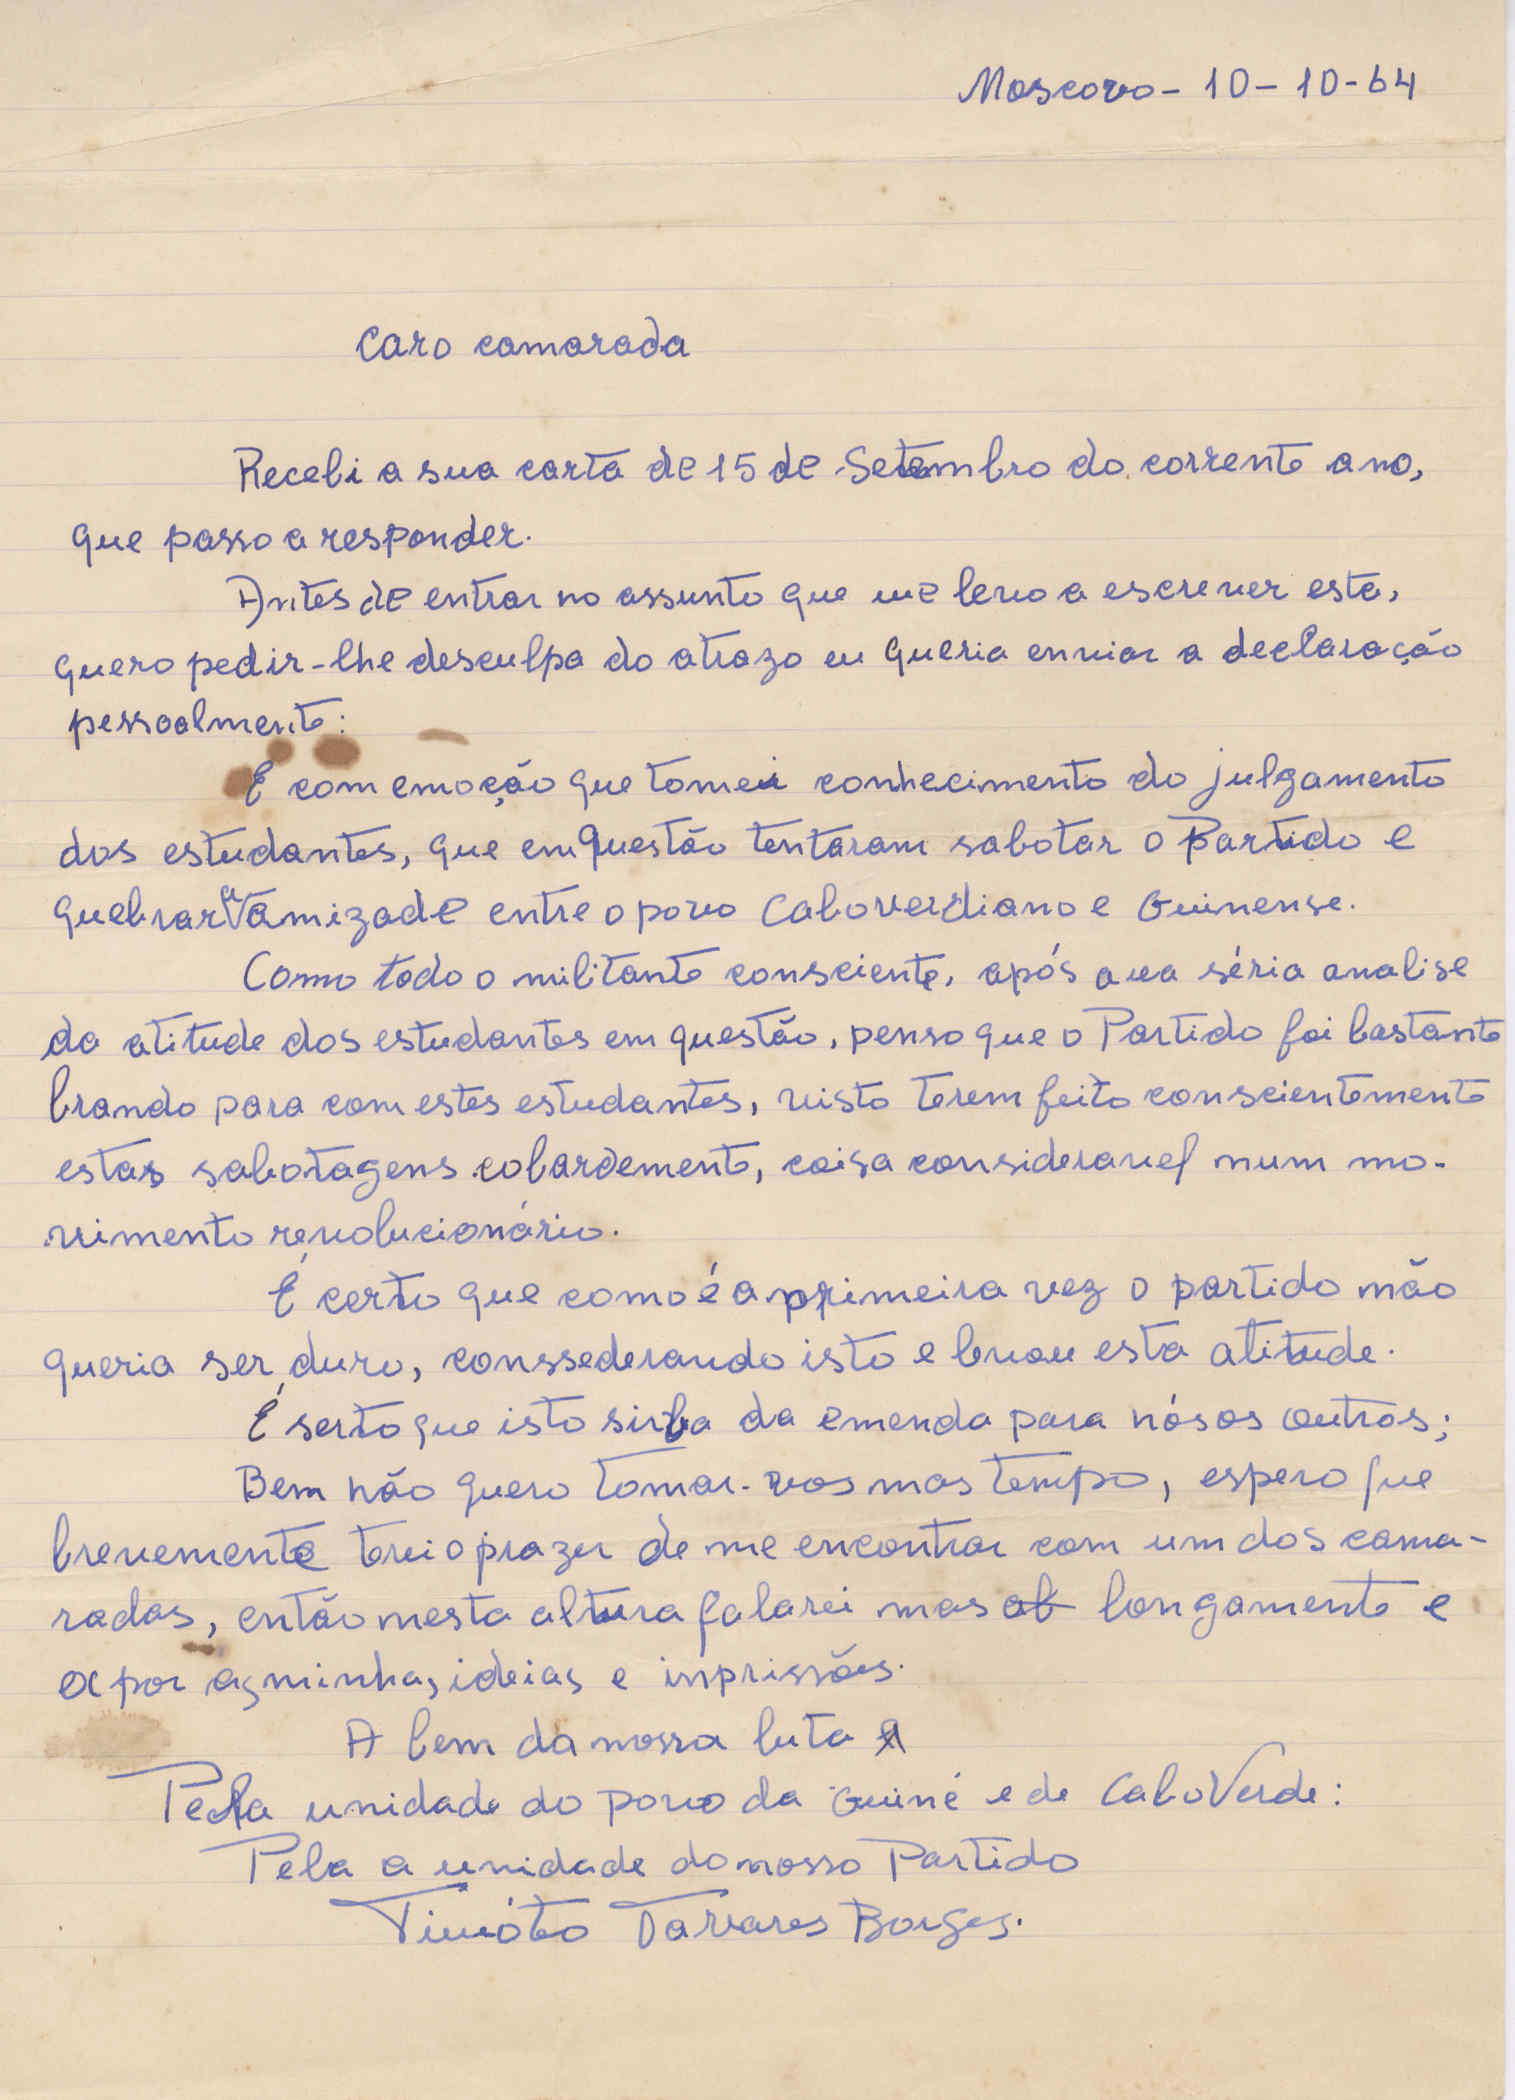 Moscovo - 10 - 10 - 64
Caro camarada
Recebi a sua carta de 15 de Setembro do corrente ano,
que passo a responder.
Antes de entrar no assunto que me levo a escrever esta,
quero pedir-lhe desculpa do atrazo eu queria enviar a declaração
pessoalmente:
É com emoção que tomei conhecimento do julgamento
dos estudantes, que em questão tentaram sabotar o Partido e
quebrar a amizade entre o povo Caboverdiano e Guinense.
Como todo o militante consciente, após a séria analise
da atitude dos estudantes em questão, penso que o Partido foi bastante
brando para com estes estudantes, visto terem feito conscientemente
estas sabotagens cobardemente, coisa consideravel num mo-
vimento revolucionário.
É certo que como é a primeira vez o partido não
queria ser duro, conssederando isto e levou esta atitude.
É serto que isto sirba da emenda para nós os outros;
Bem não quero tomar-vos mas tempo, espero que
brevemente terei o prazer de me encontrar com um dos cama-
radas, então nesta altura falarei mas longamente e
expor as minhas ideias e inprissões.
A bem da nossa luta
Pela unidade do povo da Guiné e de Cabo Verde:
Pela a unidade do nosso Partido
Timóteo Tavares Borges.